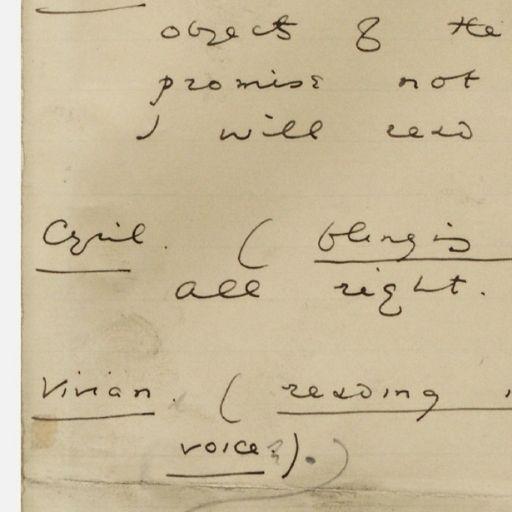 object of the
promise not
I will read
Cyril. ( flinging
all right.
Vivian. ( reading
voice).